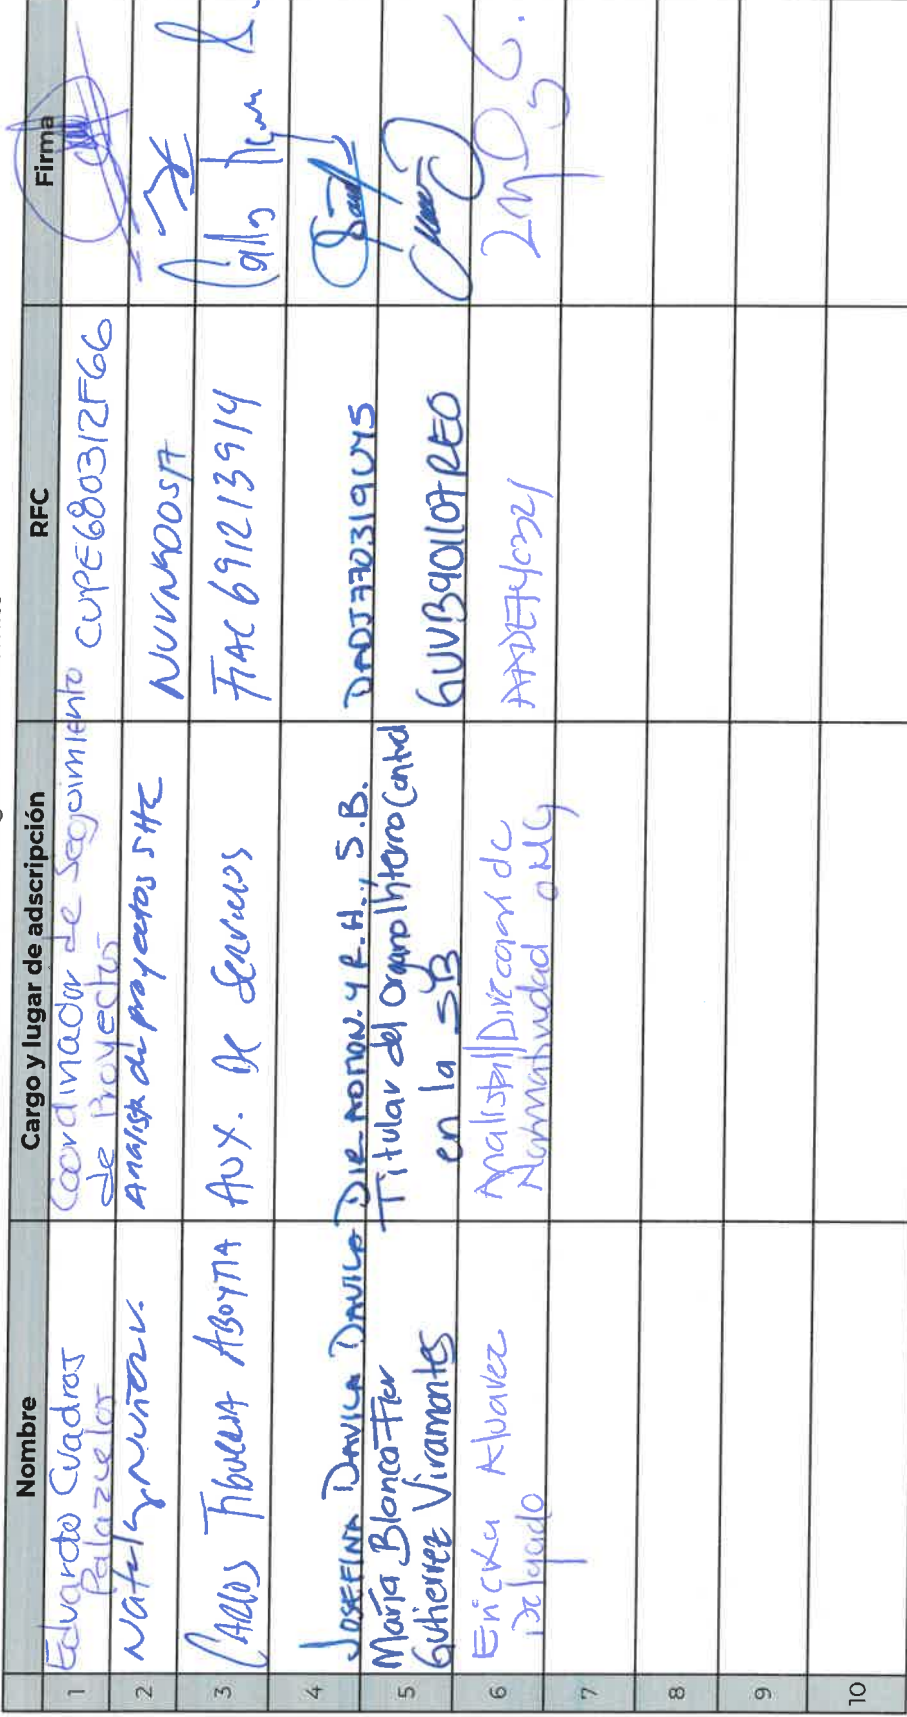 Nombre
Cargo y lugar de adscripción
RFC
Firma
1
Eduardo Cuadros
Palazuelos
Coordinador de Seguimiento
de Proyectos
CUPE680312F66
2
Nataly Nuñez V.
Analista de proyectos SHE
3
Carlos Tiburcia Aboytia
Aux. De Servicios
TIAC691213914
4
Josefina Davila Davila
Dir. Admon. y R.H., S.B.
DADJ770319UY5
5
María Blanca Flor
Gutierrez Viramontes
Titular del Organo Interno Control
en la SB
GUVB901107RE0
6
Ericka Alvarez
Delgado
Analista/Direccion de
Normatividad OMG
7
8
9
10